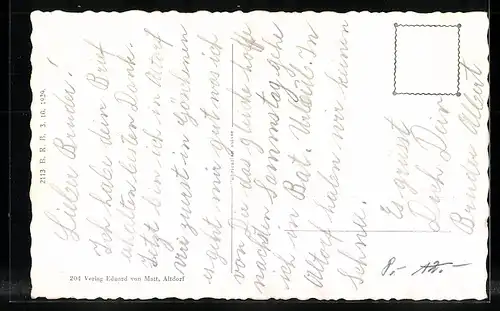 Lieber Bruder!
Ich habe dein Brief
erhalten besten Dank.
Jetzt bin ich in Altorf
zuerst in Göschenen
es geht mir gut was ich
von Dir das gleiche hoffe
nächsten Sammstag gehe
ich in Bat. Urlaub. In
Altorf haben wir keinen
Schnee.
Es grüsst
Dich Dein
Bruder Albert
2113 B. R. B. 3. 10. 1939.
204 Verlag Eduard von Matt, Altdorf
8.- 12.-